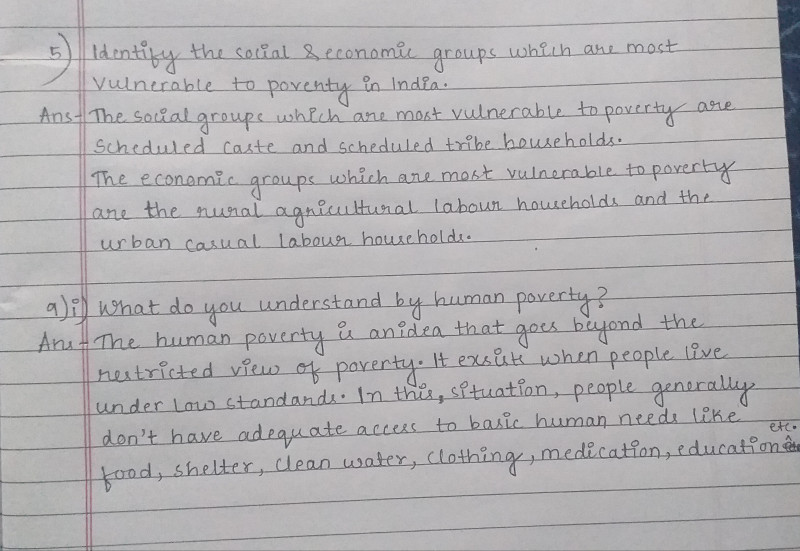 5) Identify the social & economic groups which are most
vulnerable to poverty in India.
Ans- The social groups which are most vulnerable to poverty are
scheduled caste and scheduled tribe households.
The economic groups which are most vulnerable to poverty
are the rural agricultural labour households and the
urban casual labour households.
9) i) What do you understand by human poverty?
Ans- The human poverty is an idea that goes beyond the
restricted view of poverty. It exsists when people live
under low standards. In this, situation, people generally
don't have adequate access to basic human needs like
food, shelter, clean water, clothing, medication, education etc.